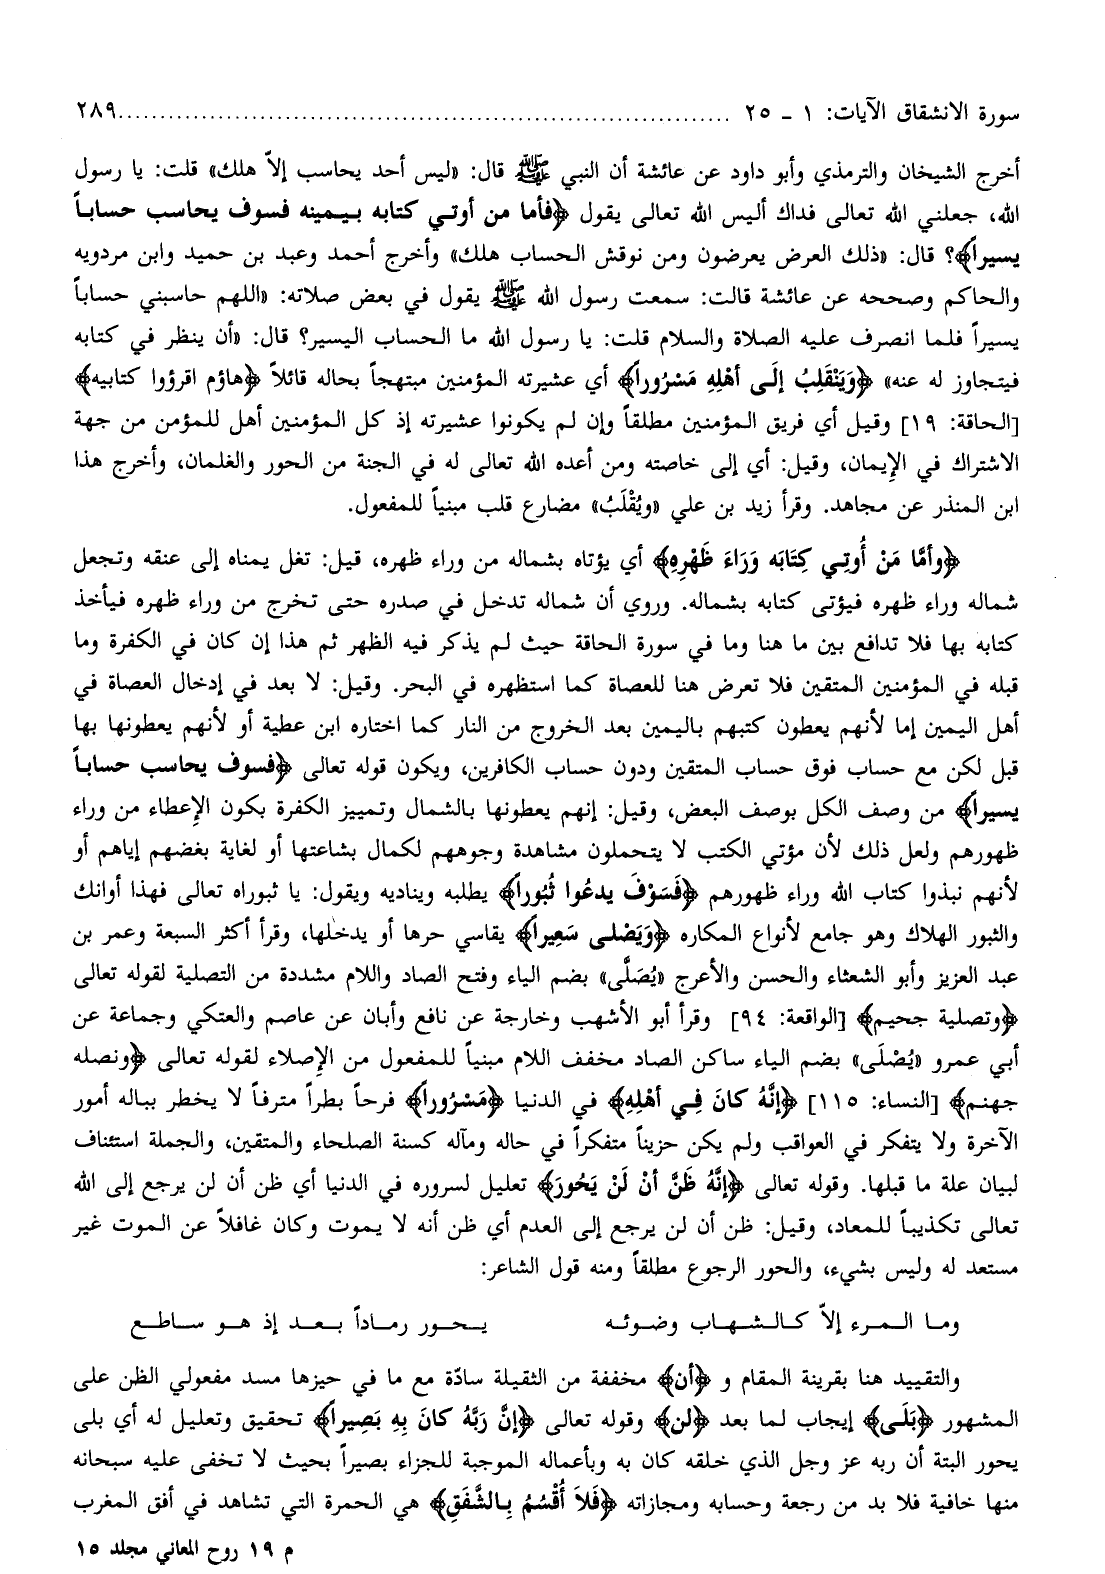 سورة الانشقاق الآيات: ١ ـ ٢٥ ..........................................................................٢٨٩
أخرج الشيخان والترمذي وأبو داود عن عائشة أن النبي ﷺ قال: «ليس أحد يحاسب إلاّ هلك» قلت: يا رسول
الله، جعلني الله تعالى فداك أليس الله تعالى يقول ﴿فأما من أوتي كتابه بيمينه فسوف يحاسب حساباً
يسيراً﴾؟ قال: «ذلك العرض يعرضون ومن نوقش الحساب هلك» وأخرج أحمد وعبد بن حميد وابن مردويه
والحاكم وصححه عن عائشة قالت: سمعت رسول الله ﷺ يقول في بعض صلاته: «اللهم حاسبني حساباً
يسيراً فلما انصرف عليه الصلاة والسلام قلت: يا رسول الله ما الحساب اليسير؟ قال: «أن ينظر في كتابه
فيتجاوز له عنه» ﴿وَيَنْقَلِبُ إلَى أهْلِهِ مَسْرُوراً﴾ أي عشيرته المؤمنين مبتهجاً بحاله قائلاً ﴿هاؤم اقرؤوا كتابيه﴾
[الحاقة: ١٩] وقيل أي فريق المؤمنين مطلقاً وإن لم يكونوا عشيرته إذ كل المؤمنين أهل للمؤمن من جهة
الاشتراك في الإيمان، وقيل: أي إلى خاصته ومن أعده الله تعالى له في الجنة من الحور والغلمان، وأخرج هذا
ابن المنذر عن مجاهد. وقرأ زيد بن علي «ويُقْلَبُ» مضارع قلب مبنياً للمفعول.
﴿وأمَّا مَنْ أُوتِي كِتَابَه وَرَاءَ ظَهْرِهِ﴾ أي يؤتاه بشماله من وراء ظهره، قيل: تغل يمناه إلى عنقه وتجعل
شماله وراء ظهره فيؤتى كتابه بشماله. وروي أن شماله تدخل في صدره حتى تخرج من وراء ظهره فيأخذ
كتابه بها فلا تدافع بين ما هنا وما في سورة الحاقة حيث لم يذكر فيه الظهر ثم هذا إن كان في الكفرة وما
قبله في المؤمنين المتقين فلا تعرض هنا للعصاة كما استظهره في البحر. وقيل: لا بعد في إدخال العصاة في
أهل اليمين إما لأنهم يعطون كتبهم باليمين بعد الخروج من النار كما اختاره ابن عطية أو لأنهم يعطونها بها
قبل لكن مع حساب فوق حساب المتقين ودون حساب الكافرين، ويكون قوله تعالى ﴿فسوف يحاسب حساباً
يسيراً﴾ من وصف الكل بوصف البعض، وقيل: إنهم يعطونها بالشمال وتمييز الكفرة بكون الإعطاء من وراء
ظهورهم ولعل ذلك لأن مؤتي الكتب لا يتحملون مشاهدة وجوههم لكمال بشاعتها أو لغاية بغضهم إياهم أو
لأنهم نبذوا كتاب الله وراء ظهورهم ﴿فَسَوْفَ يدعُوا ثُبُوراً﴾ يطلبه ويناديه ويقول: يا ثبوراه تعالى فهذا أوانك
والثبور الهلاك وهو جامع لأنواع المكاره ﴿وَيَصْلى سَعِيراً﴾ يقاسي حرها أو يدخلها، وقرأ أكثر السبعة وعمر بن
عبد العزيز وأبو الشعثاء والحسن والأعرج «يُصَلَّى» بضم الياء وفتح الصاد واللام مشددة من التصلية لقوله تعالى
﴿وتصلية جحيم﴾ [الواقعة: ٩٤] وقرأ أبو الأشهب وخارجة عن نافع وأبان عن عاصم والعتكي وجماعة عن
أبي عمرو «يُصْلَى» بضم الياء ساكن الصاد مخفف اللام مبنياً للمفعول من الإصلاء لقوله تعالى ﴿ونصله
جهنم﴾ [النساء: ١١٥] ﴿إنَّهُ كانَ فِي أهْلِهِ﴾ في الدنيا ﴿مَسْرُوراً﴾ فرحاً بطراً مترفاً لا يخطر بباله أمور
الآخرة ولا يتفكر في العواقب ولم يكن حزيناً متفكراً في حاله ومآله كسنة الصلحاء والمتقين، والجملة استئناف
لبيان علة ما قبلها. وقوله تعالى ﴿إنَّهُ ظَنَّ أنْ لَنْ يَحُورَ﴾ تعليل لسروره في الدنيا أي ظن أن لن يرجع إلى الله
تعالى تكذيباً للمعاد، وقيل: ظن أن لن يرجع إلى العدم أي ظن أنه لا يموت وكان غافلاً عن الموت غير
مستعد له وليس بشيء، والحور الرجوع مطلقاً ومنه قول الشاعر:
وما المرء إلاّ كالشهاب وضوئه يحور رماداً بعد إذ هو ساطع
والتقييد هنا بقرينة المقام و ﴿أن﴾ مخففة من الثقيلة سادّة مع ما في حيزها مسد مفعولي الظن على
المشهور ﴿بَلَى﴾ إيجاب لما بعد ﴿لن﴾ وقوله تعالى ﴿إنَّ رَبَّهُ كانَ بِهِ بَصِيراً﴾ تحقيق وتعليل له أي بلى
يحور البتة أن ربه عز وجل الذي خلقه كان به وبأعماله الموجبة للجزاء بصيراً بحيث لا تخفى عليه سبحانه
منها خافية فلا بد من رجعة وحسابه ومجازاته ﴿فَلاَ أُقْسُمُ بِالشَّفَقِ﴾ هي الحمرة التي تشاهد في أفق المغرب
م ١٩ روح المعاني مجلد ١٥